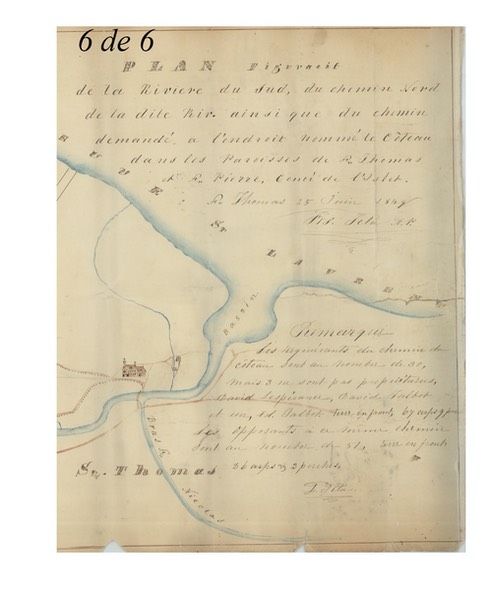 6 de 6
PLAN Figuratif
de la Riviere du Sud, du chemin Nord
de la dite Riv. ainsi que du chemin
demandé a l'endroit nommé le Côteau
dans les Paroisses de St. Thomas
et St. Pierre, Comté de l'Islet.
St. Thomas 25 Juin 1849
St. LAURENT
Bassin
Remarque
Les requérants du chemin du
côteau sont au nombre de 30,
mais 3 ne sont pas propriétaires,
David Lespérance, David Talbot
et un, Ed. Talbot
Les opposants à ce même chemin
sont au nombre de 51,
36 arps & 3 perches,
Bras St.
Nicolas
St. Thomas